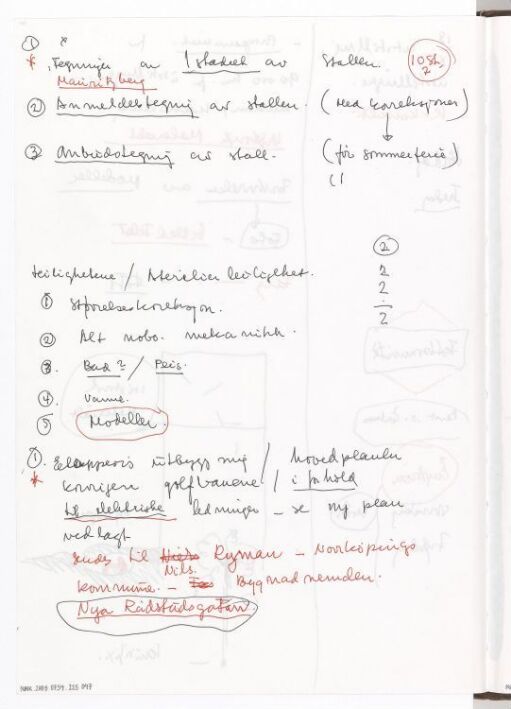 ①
* Tegninger av 1 stadiet av Stallen. 10 St. 2
Mauritzberg
② Anmeldestegning av stallen. (Med korreksjoner)
③ Anbudstegning av stall. (før sommerferie)
②
2
Leilighetene / Atelier leilighet. 2
① Størrelseskorreksjon. 2
② Alt mekanikk.
3. Bad? / Peis.
④ Vanne.
⑤ Modeller.
① utbygging / hovedplanen
* korrigere golfbanene / i forhold
til elektriske ledninger – se ny plan
vedlagt
sendes til Nils. Ryman – Norrköpings
kommune. – Byggnadnemden.
Nya Rådstugugatan.
NMK.2005